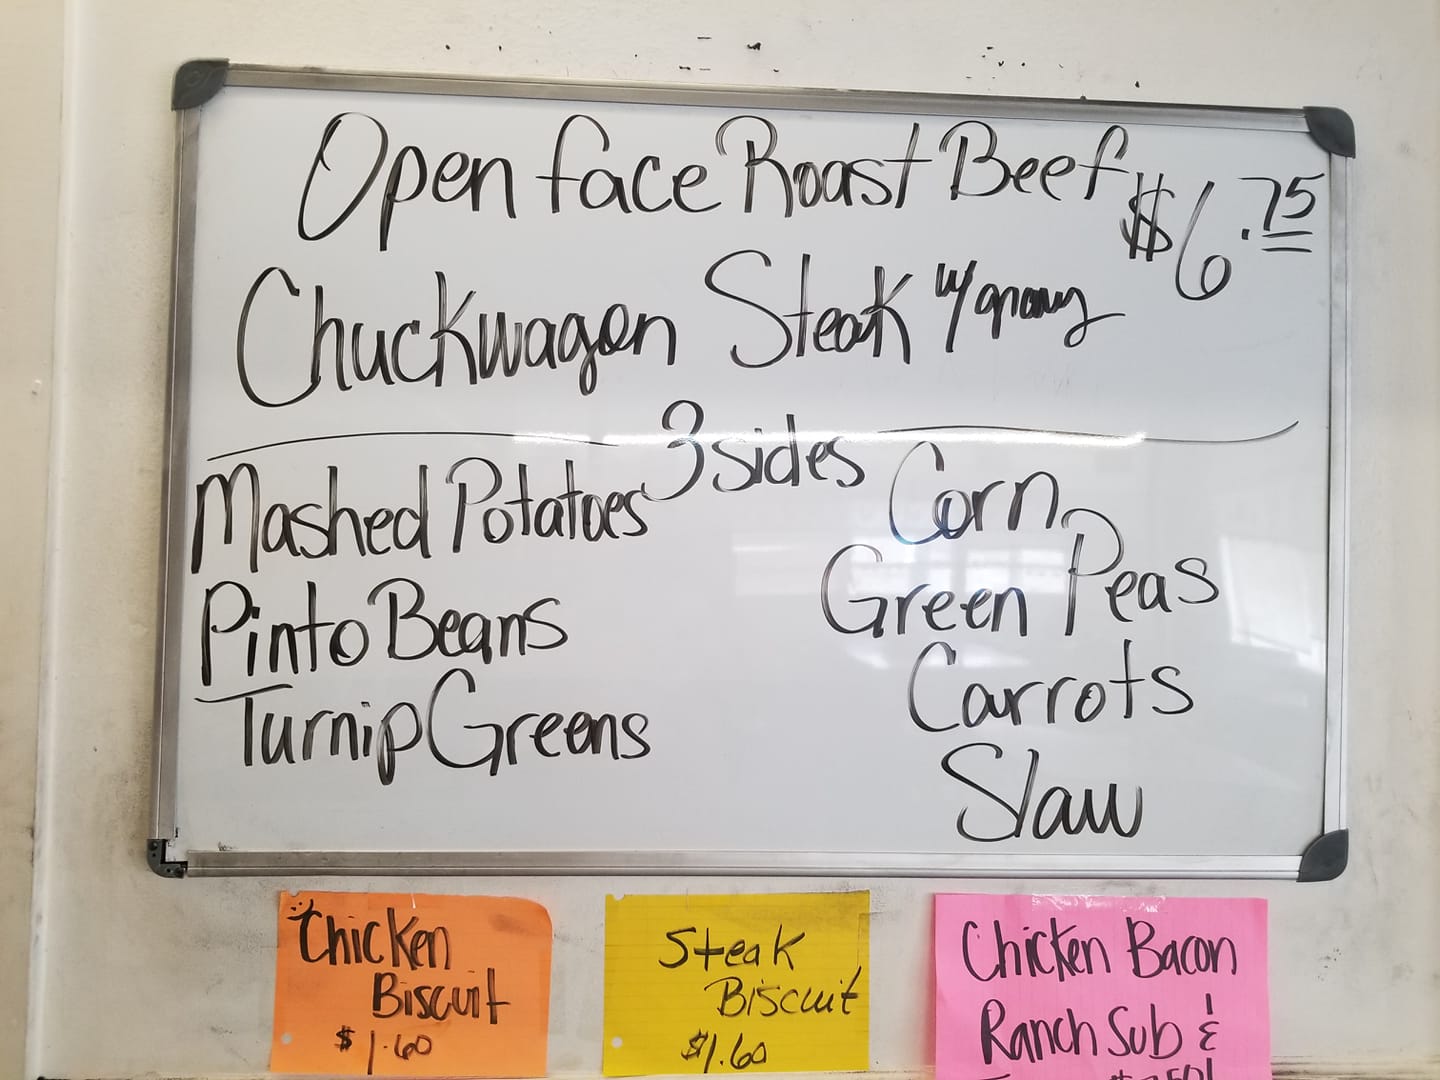 Open face Roast Beef
$6.75
Chuckwagon Steak w/gravy
3 sides
Mashed Potatoes
Pinto Beans
Turnip Greens
Corn
Green Peas
Carrots
Slaw
Chicken
Biscuit
$1.60
Steak
Biscuit
$1.60
Chicken Bacon
Ranch Sub &